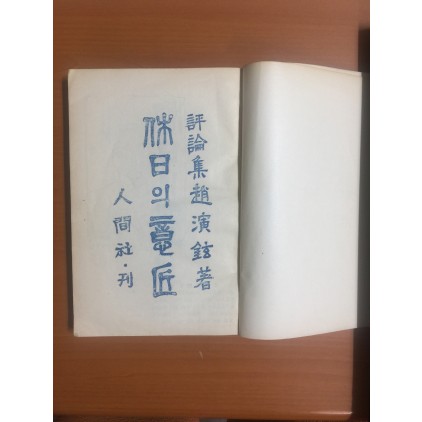 評論集趙演鉉著
休日의意匠
人間社·刊